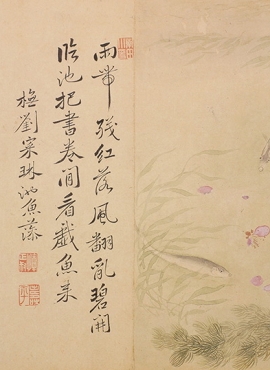 雨帶殘紅落風翻亂碧開
臨池把書卷閒看戲魚來
橅劉寀琳池魚藻